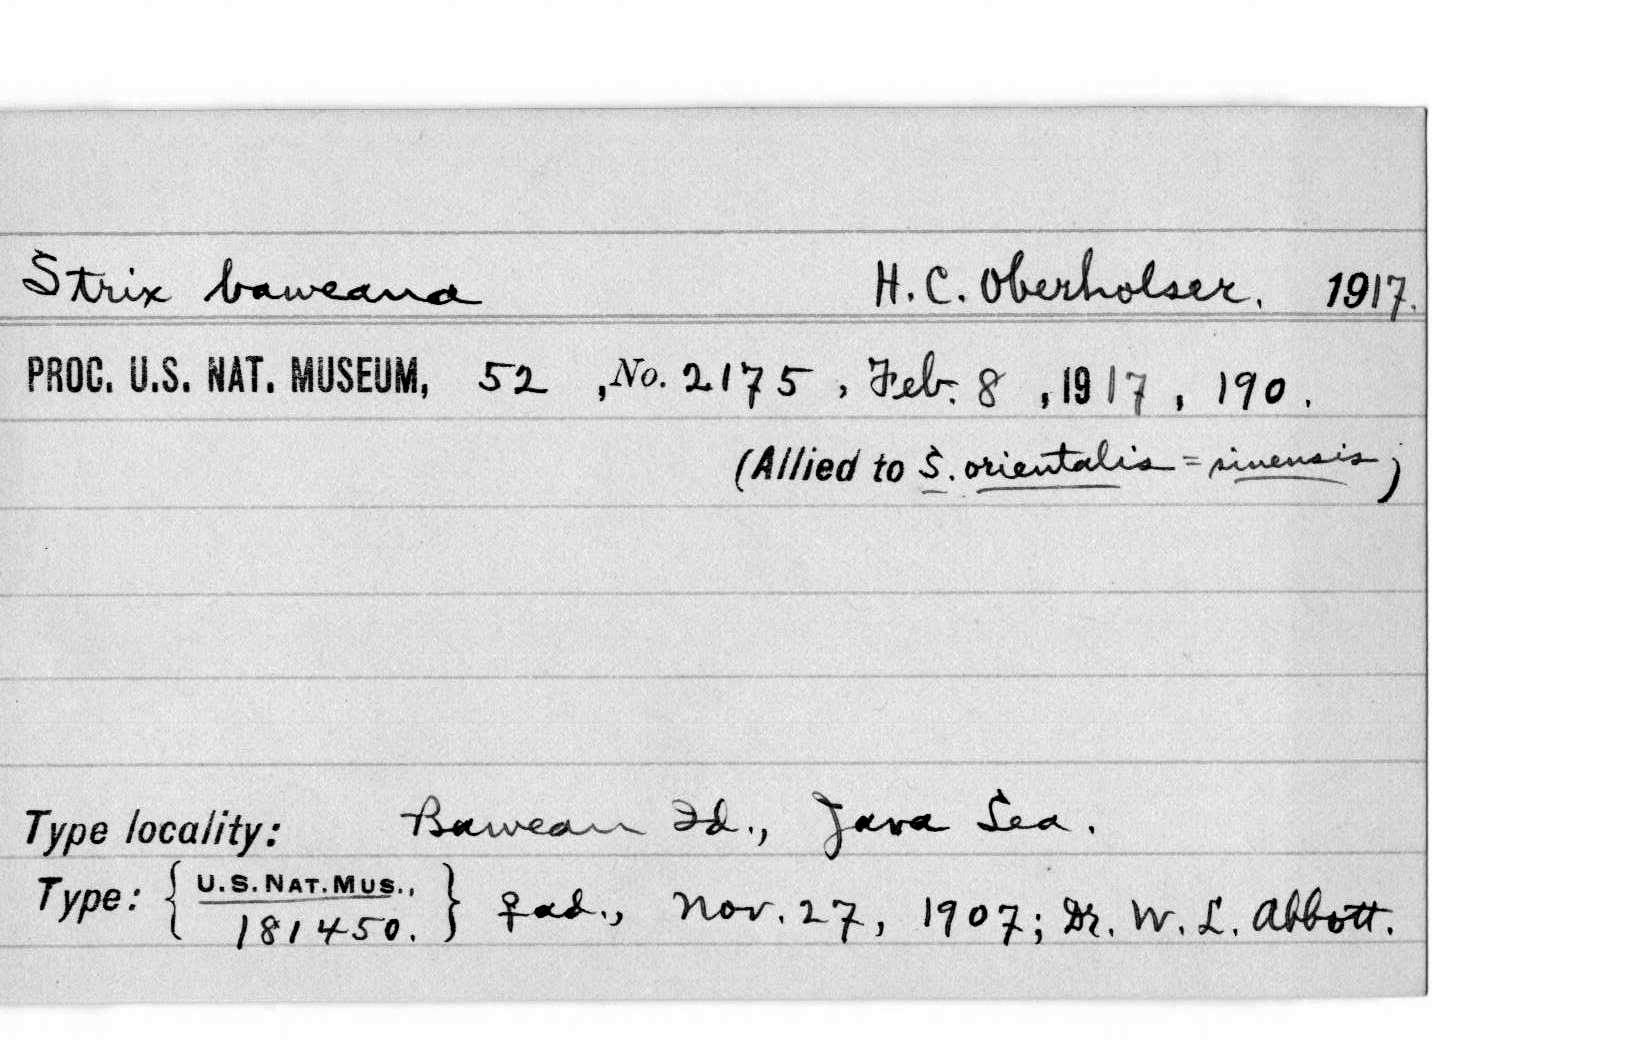 Strix baweana H. C. Oberholser. 1917.
PROC. U.S. NAT. MUSEUM, 52 , No. 2175 , Feb. 8 , 1917 , 190 .
(Allied to S. orientalis = sinensis)
Type locality: Bawean Id., Java Sea.
Type: { U.S. NAT. MUS., 181450. } ♀ ad., Nov. 27, 1907; Dr. W. L. Abbott.